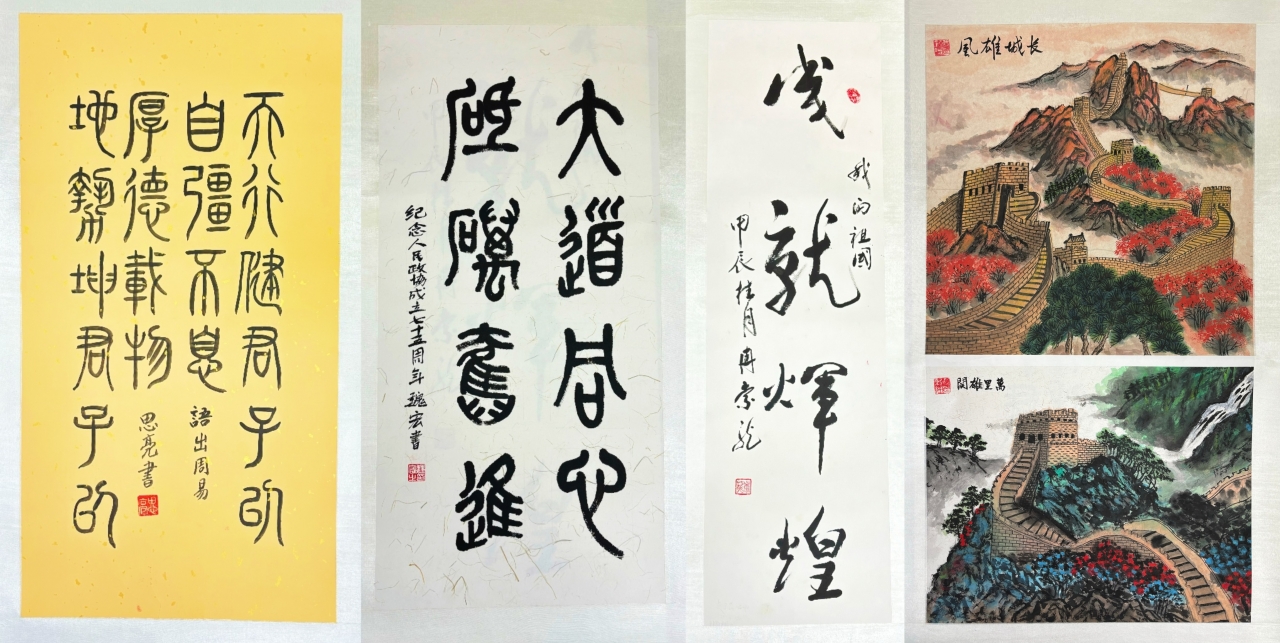 天行健君子以
自彊不息
語出周易
厚德載物
思亮書
地勢坤君子以
大道同心
砥礪奮進
纪念人民政协成立七十五周年 瑰宏書
我的祖國
成就煇煌
甲辰桂月冉崇龍
长城雄風
萬里雄関